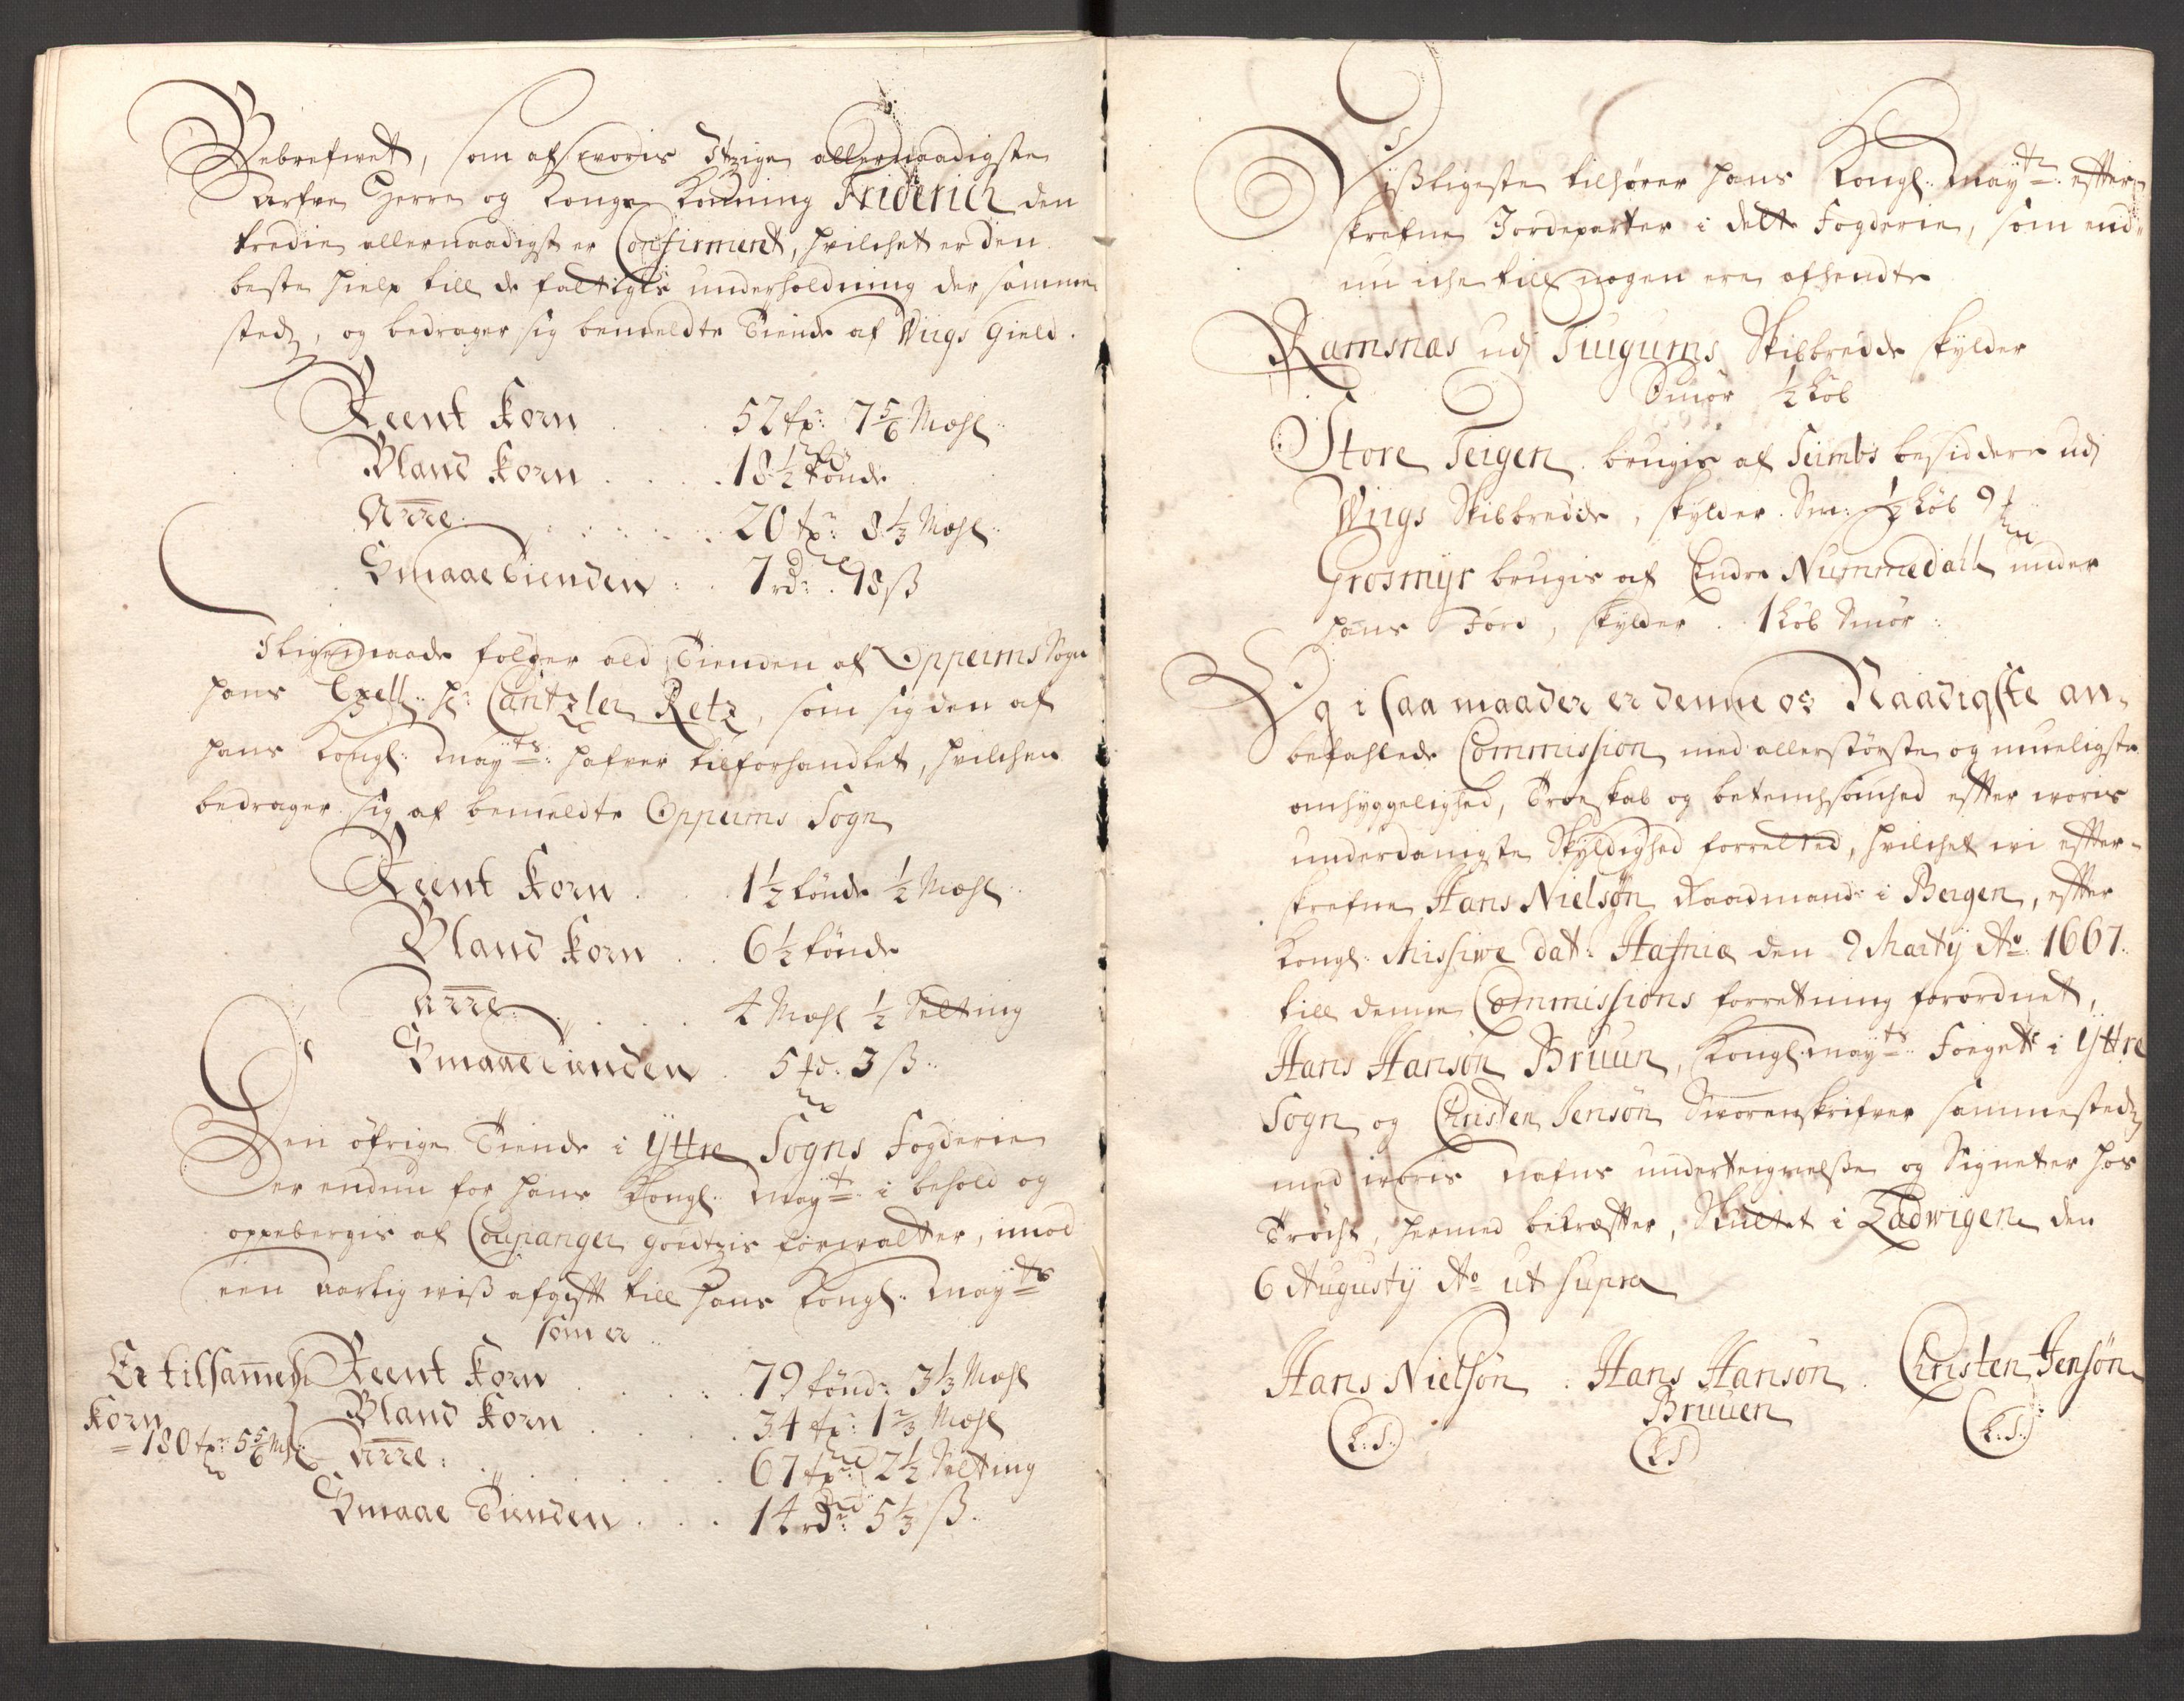 Bebrefwet, som af woris Itzige allernaadigste
Arfve Herre og Konge Konning Friderich den
tredie allernaadigst er Confirmert, hvilchet er den
beste hielp till de fattiges underholdning der samme
sted, og bedrager sig bemeldte Tiende af Wiigs Gield.
Reent Korn . . . 52 tr: 7 5/6 Mæhl
Bland Korn . . . . 18 1/2 tønde
Arre: . . . . . . 20 tr: 3 1/3 Mæhl
Smaae Tienden : . 7 rd: 18 ß
I lige maade følger ald Tienden af Oppeims Sogn
hans Exell: hr: Cantzler Retz, som sig den af
hans Kongl: Mayts: hafver tilforhandlet, hvilchen
bedrager sig af bemeldte Oppeims Sogn
Reent Korn . . . 1 1/2 tønde 1/2 Mæhl
Bland Korn . . 6 1/2 tønde
Arre . . . . 4 Mæhl 1/2 Setting
Smaae Tienden . 5 td. 3 ß
Den øfrige Tiende i Yttre Sogns Fogderie
er endnu for hans Kongl: Mayts: i behold og
oppebergis af Coupanger goedtzis forvalter, imod
een aarlig wiß afgift till hans Kongl: Mayts
som er
Er tilsammen Reent Korn . . . . 79 tønd: 3 1/3 Mæhl
Korn Bland Korn . . . . . 34 tr: 1 2/3 Mæhl
= 180 tr: 5 5/6 M: Arre: . . . . . . 67 tr: 2 1/2 Setting
Smaae Tienden . . . 14 rd: 5 1/3 ß.
Dißligeste tilhører hans Kongl: Mayts: effter
skrefne Jordeparter i dette Fogderie, som end-
nu iche till nogen ere afhendte
Ramsnæs udj Tiugums Skibbredde skylder
Smør 1/2 Løb
Store Teigen brugis af Seimbs besiddere udj
Wiigs Skibbredde, skylder Sm: 1/2 Løb 9
Grosmyr brugis af Endre Nummedall under
hans Jord, skylder . 1 Løb Smør :
Og i saa maader er denne os Naadigste an-
befahlede Commission med allerstørste og mueligste
omhyggelighed, Troeskab og betenchsomhed effter woris
underdanigste Skyldighed forretted, hvilchet wi effter-
skrefne Hans Nielsøn Raadmand i Bergen, effter
Kongl: Missive dat: Hafniæ den 9 Martij Ao: 1667.
till denne Commissions forretning forordnet,
Hans Hansøn Bruun, Kongl: Mayts: Foegett i Yttre
Sogn og Christen Jensøn Sworenskrifver sammestedz
med woris nafns underteignelße og Signeter hos
Tröcht, hermed bekræfter, Skultet i Ladwigen den
6 Augustij Ao ut supra
Hans Nielsøn . Hans Hansøn . Christen Jensøn
Bruuen
(L.S.) (LS) (L.S.)